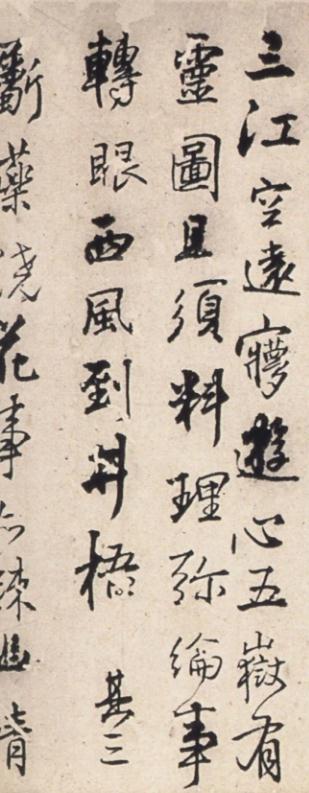 三江空遠㝱遊心五嶽有
靈圖且須料理弥綸事
轉眼西風到井梧 其三
斸藥澆花事亦疎幽